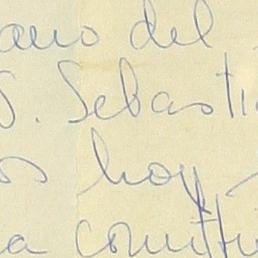 ano del
S. Sebasti
os hoy
a constitu